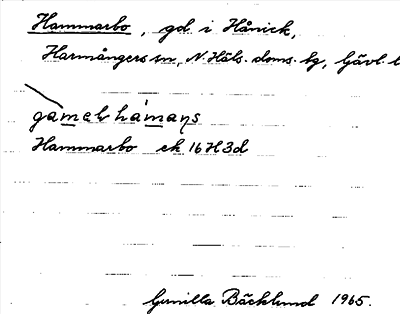 Hammarbo, gd i Hånick,
Harmångers sn, N. Häls. doms. hg, Gävl. l
gamelv hámaṇs
Hammarbo ek 16H3d
Gunilla Bäcklund 1965.